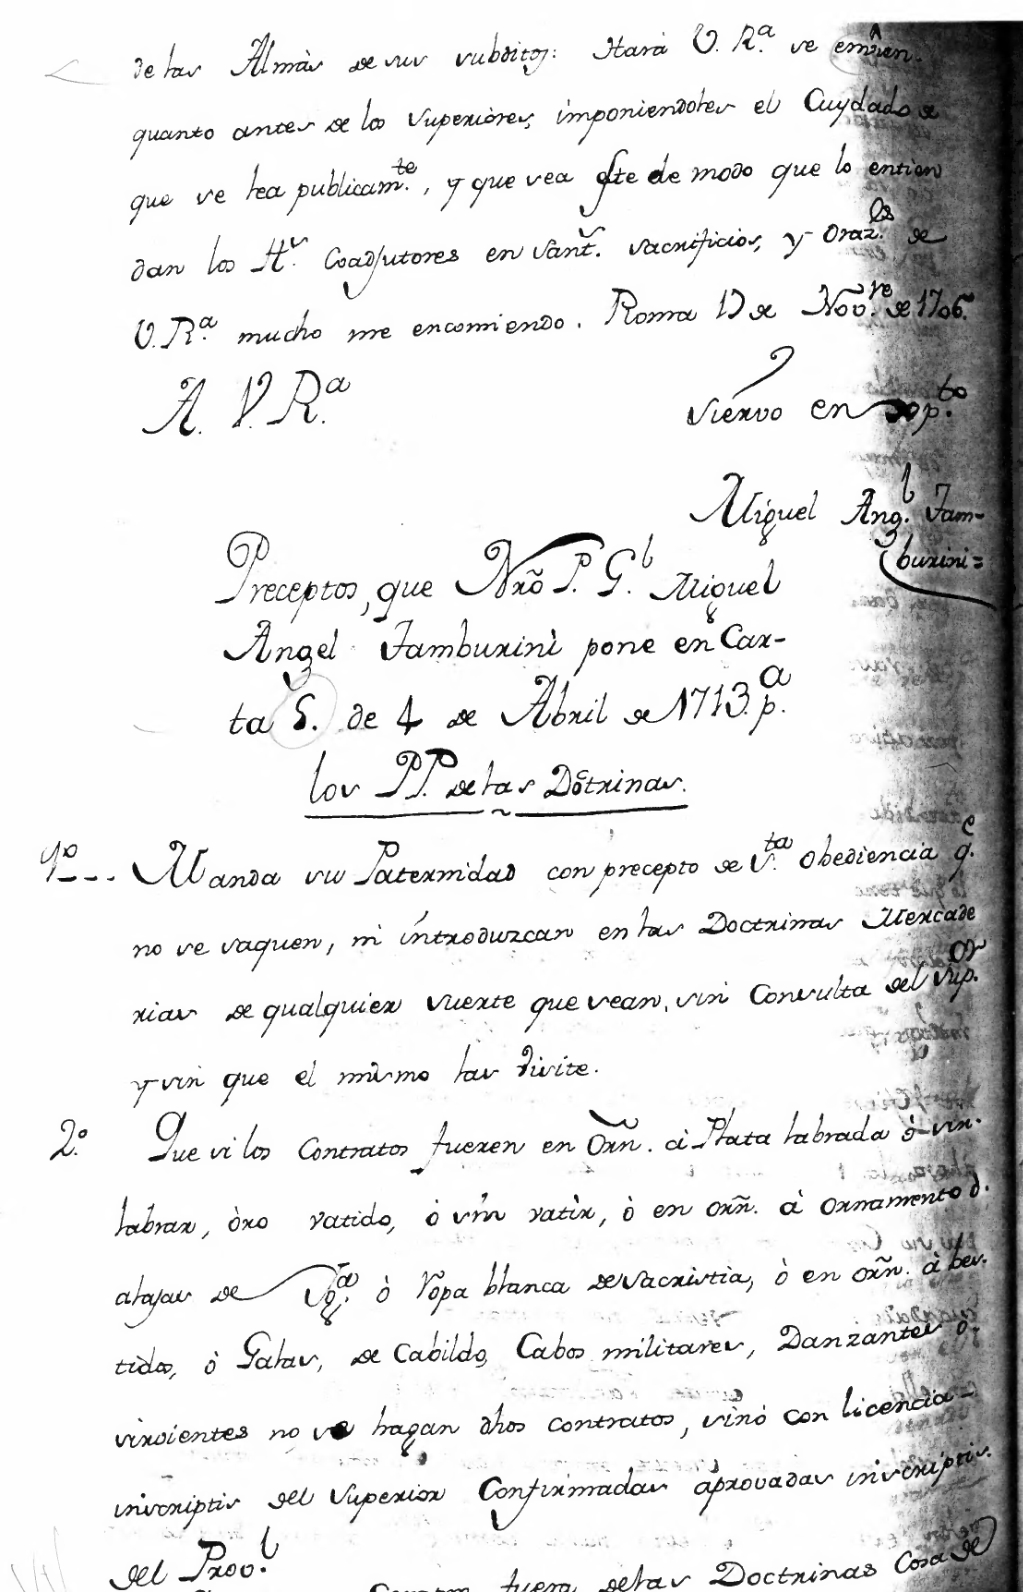 de las Almas de sus subditos: Hará V. R.ª se emvien.
quanto antes de los Superiores, imponiendoles el Cuydado de
que se lea publicam.te, y que sea este de modo que lo entien
dan los H.s Coadjutores en sant.s sacrificios, y Oraz.es de
V. R.ª mucho me encomiendo. Roma 17 de Nov.re de 1706.
A. V. R.ª siervo en Xp.to
Miguel Ang.l Tam-
burini=
Preceptos, que Nrõ P. G.l Miguel
Angel Tamburini pone en Car-
ta 5. de 4 de Abril de 1713. p.ª
los PP. de las Dõtrinas.
1º--- Manda su Paternidad con precepto de S.ta Obediencia q.e
no se saquen, ni introduzcan en las Doctrinas Mercade
rias de qualquier suerte que sean, sin Consulta del Sup.or
y sin que el mismo las visite.
2.º Que si los Contratos fueren en Orñ. à Plata labrada ó sin
labrar, òro vatido, ò sin vatir, ò en orñ. à ornamento ò.
alajas de Yg.ª ò Ropa blanca de sacristia, ò en orñ. à bes.
tidos, ò Galas, de Cabildo, Cabos militares, Danzantes ò,
sirvientes no se hagan dhos contratos, sinó con licencia
inscriptis del Superior Confirmadas aprovadas inscriptis.
del Prov.l
fuera de las Doctrinas Cosa de